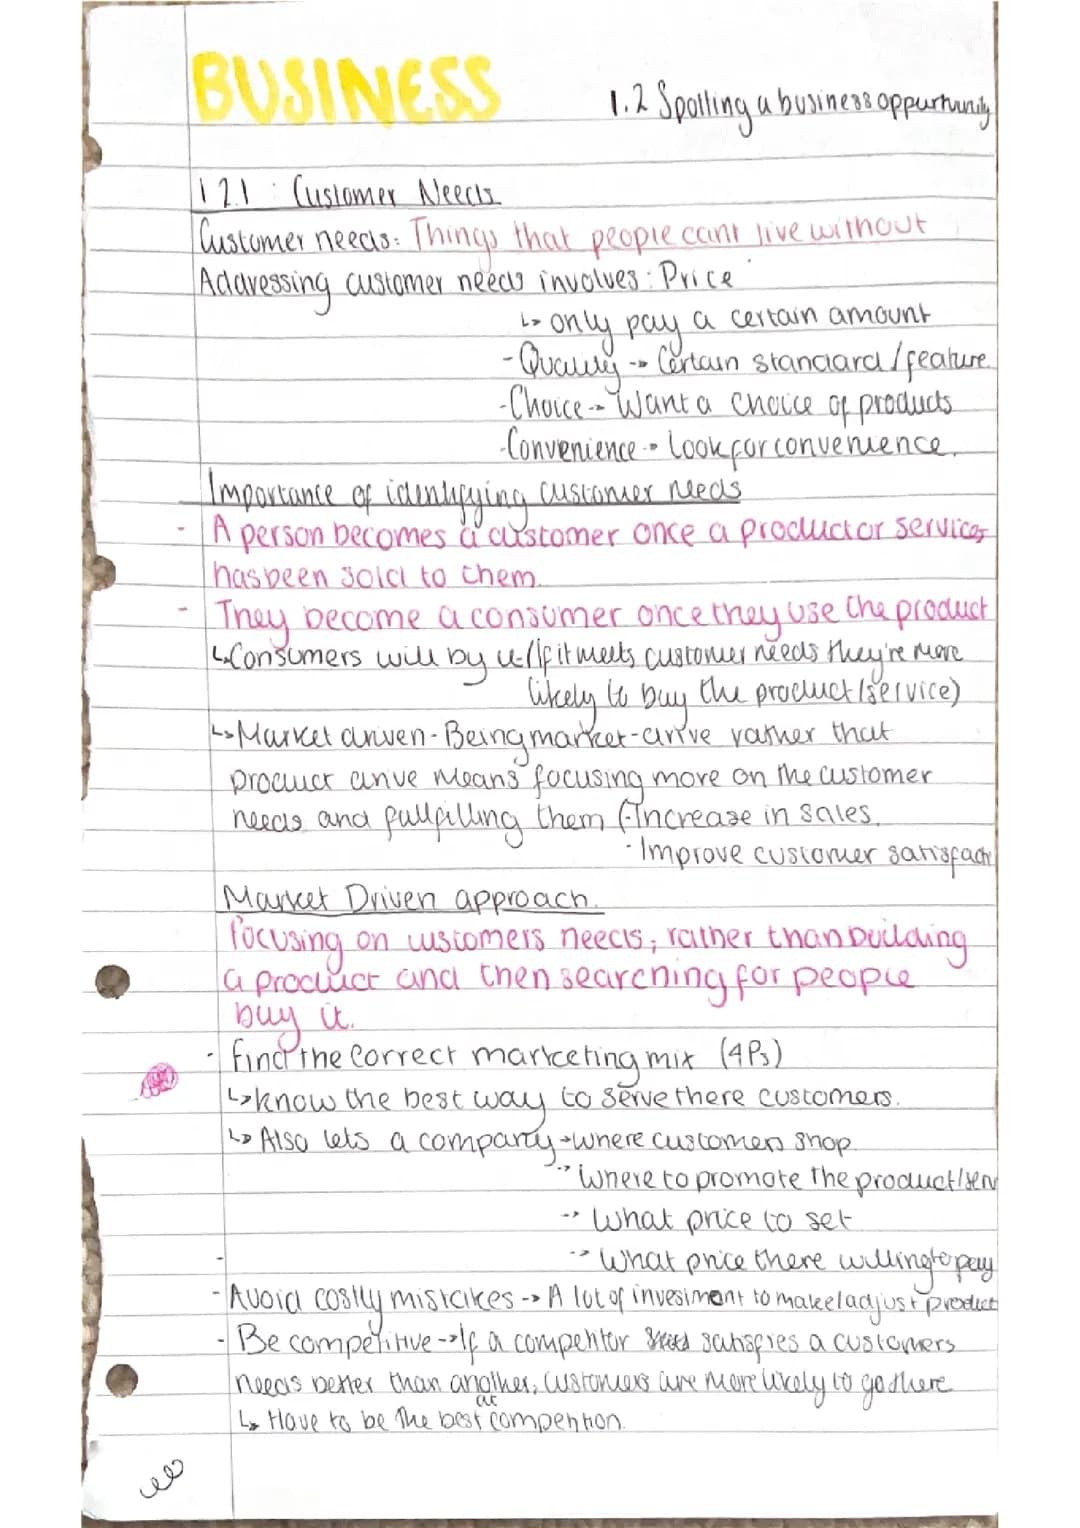 BUSINESS
1.2 Spotting a business oppurtunity
1.2.1 : Customer Needs
Customer needs: Things that people cant live without
Addressing customer needs involves: Price
↳ only pay a certain amount
- Quality -> Certain standard / feature
- Choice -> Want a choice of products
- Convenience -> Look for convenience.
Importance of identifying customer needs
- A person becomes a customer once a product or services
has been sold to them.
- They become a consumer once they use the product
↳ Consumers will by it (If it meets customer needs they're more
likely to buy the product/service)
↳ Market driven - Being market-drive rather that
product drive means focusing more on the customer
needs and fullfilling them (- Increase in sales.
- Improve customer satisfact
Market Driven approach.
Focusing on customers needs, rather than building
a product and then searching for people
buy it.
- Find the correct marketing mix (4Ps)
↳ know the best way to serve there customers.
↳ Also lets a company -> where customers shop
-> Where to promote the product/serv
-> What price to set
-> What price there willing to pay
- Avoid costly mistakes -> A lot of investment to make/adjust product
- Be competitive -> If a competitor satisfies a customers
needs better than another, customers are more likely to go there
↳ Have to be the best at competition.